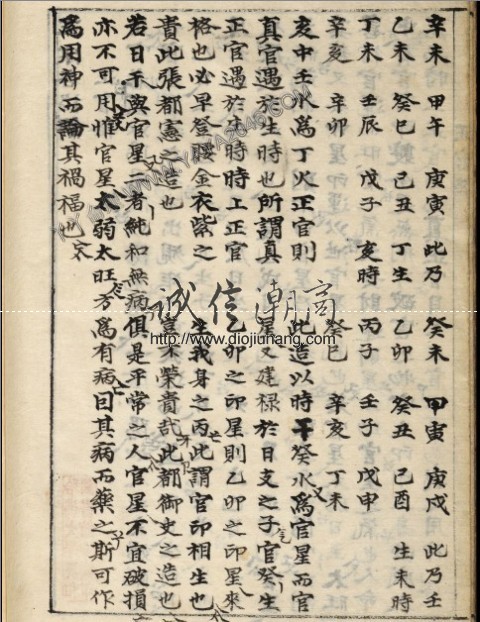 辛未 甲午 庚寅 此乃 癸未 甲寅 庚戌 此乃壬
乙未 癸巳 己丑 丁生 乙卯 癸丑 己酉 生未時
丁未 壬辰 戊子 亥時 丙子 壬子 戊申
辛亥 辛卯 癸巳 辛亥 丁未
亥中壬水爲丁火正官則 此造以時干癸水爲官星而官
真官遇於生時也所謂真 星又建禄於日支之子官癸生
正官遇於生時時上正官 乙卯之印星則乙卯之印星來
格也必早登腰金衣紫之 生我身之丙此謂官印相生也
貴此張都憲之造也 豈不榮貴哉此都御史之造也
若日干與官星二者純和無病俱是平常之人官星不宜破損
亦不可用惟官星太弱太旺方爲有病曰其病而藥之斯可作
爲用神而論其禍福也
誠信潮高
www.diojiuhang.com